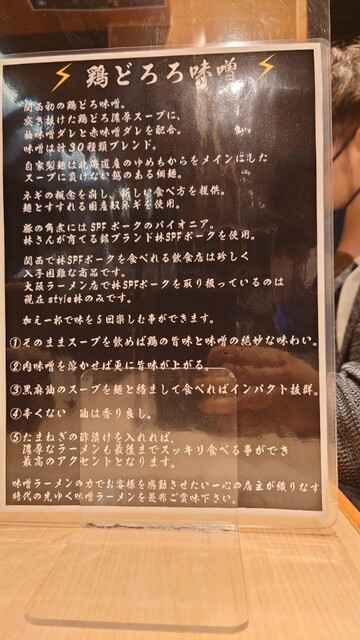 鶏どろろ味噌
関西初の鶏どろ味噌。
突き抜けた鶏どろ濃厚スープに、
柚味噌ダレと赤味噌ダレを配合。
味噌は計30種類ブレンド。
自家製麺は北海道産のゆめちからをメインにした
スープに負けない越のある細麺。
ネギの概念を崩し、新しい食べ方を提供。
麺とすすれる国産奴ネギを使用。
豚の角煮にはSPFポークのパイオニア。
林さんが育てる銘ブランド林SPFポークを使用。
関西で林SPFポークを食べれる飲食店は珍しく
入手困難な商品です。
大阪ラーメン店で林SPFポークを取り扱っているのは
現在style林のみです。
加え一杯で味を5回楽しむ事ができます。
①そのままスープを飲めば鶏の旨味と味噌の絶妙な味わい。
②肉味噌を溶かせば更に旨味が上がる。
③黒麻油のスープを麺と絡まして食べればインパクト抜群。
④辛くない 油は香り良し。
⑤たまねぎの酢漬けを入れれば、
濃厚なラーメンも最後までスッキリ食べる事ができ
最高のアクセントとなります。
味噌ラーメンの力でお客様を感動させたい一心の店主が織りなす
時代の先ゆく味噌ラーメンを是非ご賞味下さい。